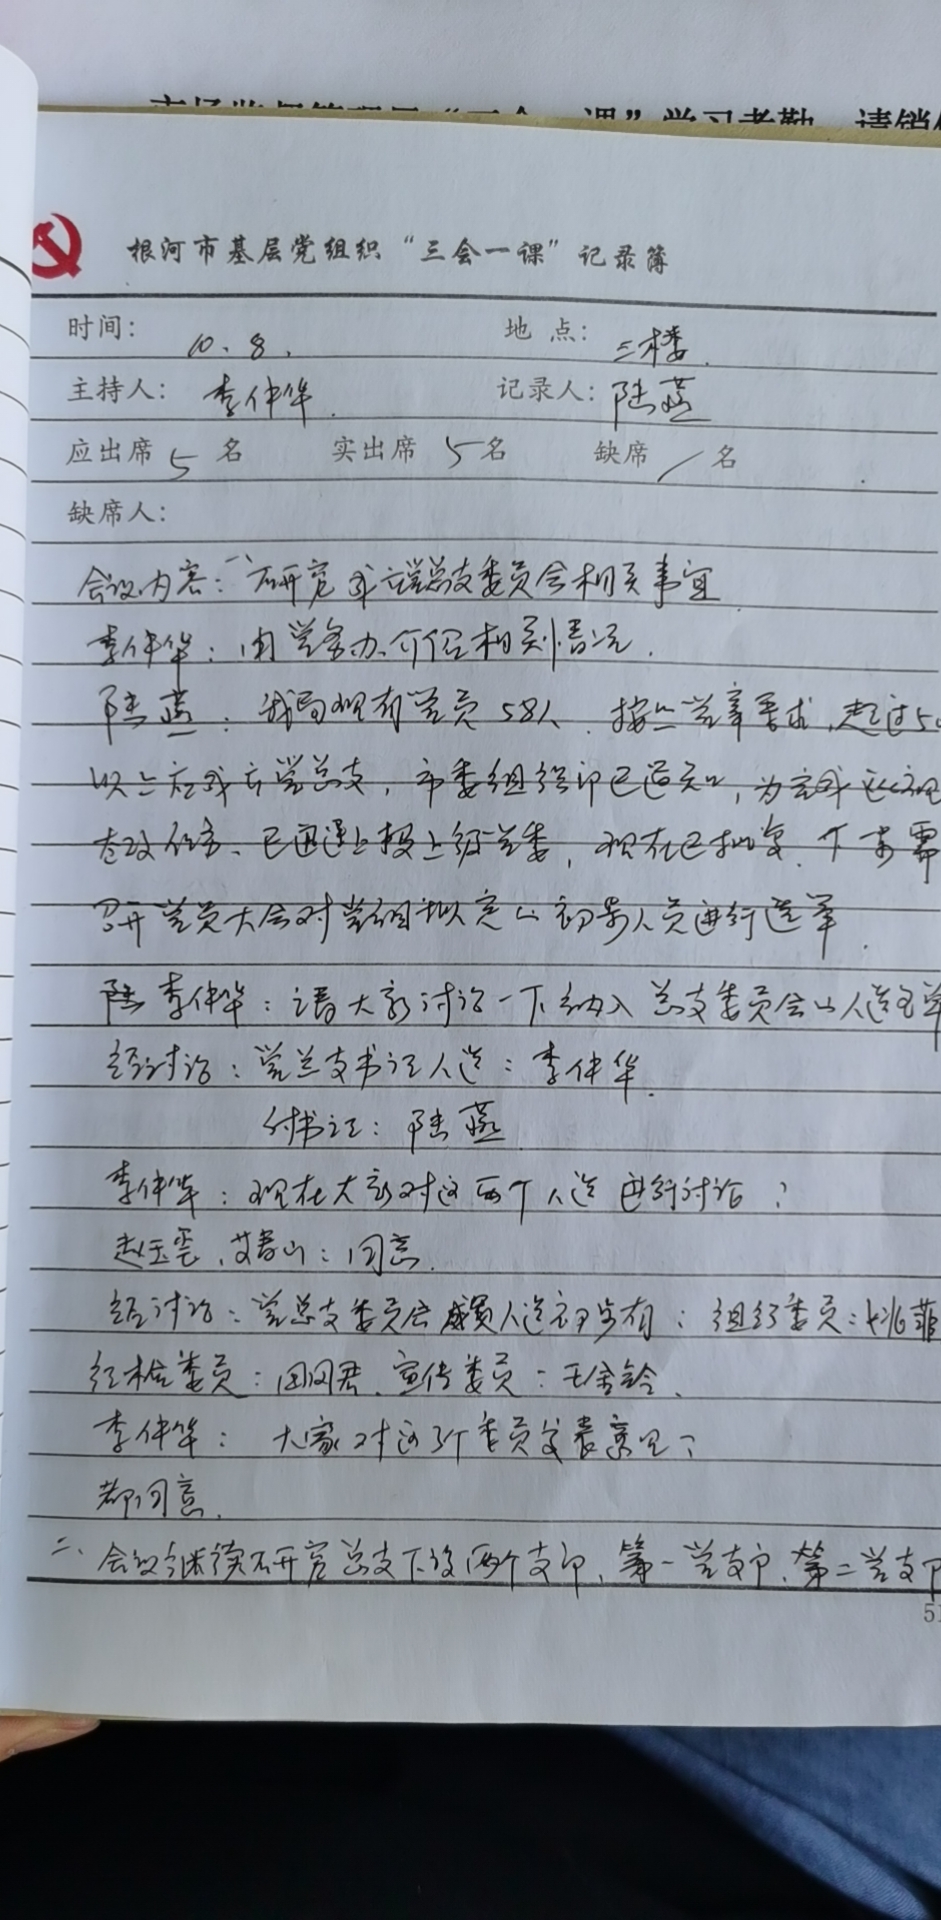 根河市基层党组织“三会一课”记录簿
时间: 10.8. 地点: 三楼.
主持人: 李仲华. 记录人: 陆燕
应出席 5 名 实出席 5 名 缺席 / 名
缺席人:
会议内容: 一、研究成立党总支委员会相关事宜
李仲华: 由党务办介绍相关情况.
陆燕: 我局现有党员58人. 按照党章要求, 超过50
以上应成立党总支, 市委组织部已通知, 为完成
任务、已迅速上报上级党委, 现在已批复. 下步需
召开党员大会对党组拟定的初步人员进行选举.
李仲华: 请大家讨论一下纳入总支委员会的人选名单
经讨论: 党总支书记人选: 李仲华.
付书记: 陆燕
李仲华: 现在大家对这两个人选进行讨论?
赵玉, 艾春山: 同意.
经讨论: 党总支委员会成员人选初步有: 组织委员: 姚菲
纪检委员: 田君、宣传委员: 王金铃.
李仲华: 大家对这3个委员发表意见?
都同意.
二、会议继续研究总支下设两个支部, 第一党支部、第二党支部